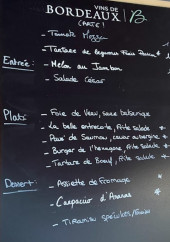 VINS DE
BORDEAUX
CARTE
- Tomate Mozza
- Tartare de légumes Frais
Entrée:
- Melon au Jambon
- Salade César
Plats:
- Foie de Veau, sauce
- La belle entrecôte, Frite salade
- Pavé de Saumon,
- Burger de l'hexagone, Frite salade
- Tartare de Boeuf, Frite Salade
Dessert:
- Assiette de Fromage
- Carpaccio d'Ananas
- Tiramisu spéculos